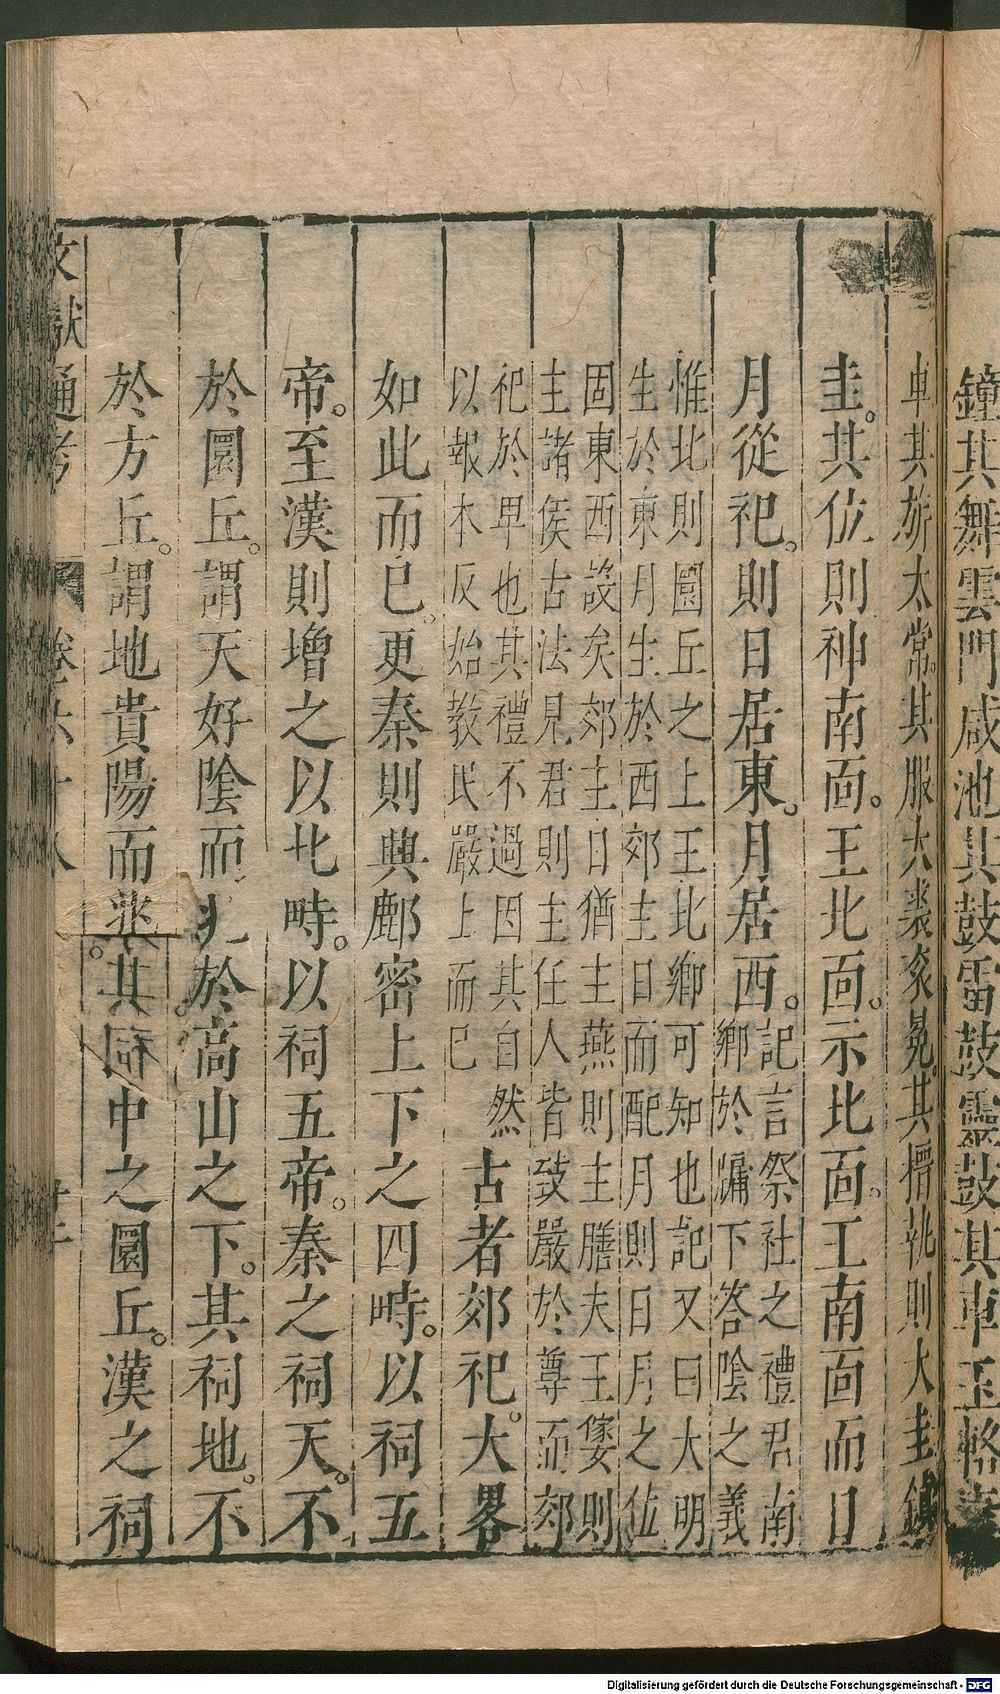 鐘其舞雲門咸池其鼓雷鼓靈鼓其車玉輅
車其旂太常其服大裘袞冕其搢執則大圭鎮
圭。其位則神南面。王北面。示北面。王南面而日
月從祀。則日居東。月居西。記言祭社之禮君南
鄉於牖下答陰之義
惟北則圜丘之上王北鄉可知也記又曰大明
生於東月生於西郊主日而配月則日月之位
固東西設矣郊主日猶主燕則主膳夫王饗則
主諸侯古法見君則主任人皆致嚴於尊而郊
祀於卑也其禮不過因其自然
以報本反始教民嚴上而已
古者郊祀。大畧
如此而已。更秦則興鄜密上下之四畤。以祠五
帝。至漢則增之以北畤。以祠五帝。秦之祠天。不
於圜丘。謂天好陰而兆於高山之下。其祠地。不
於方丘。謂地貴陽而兆。其圜中之圜丘。漢之祠
文獻通考 卷六十八